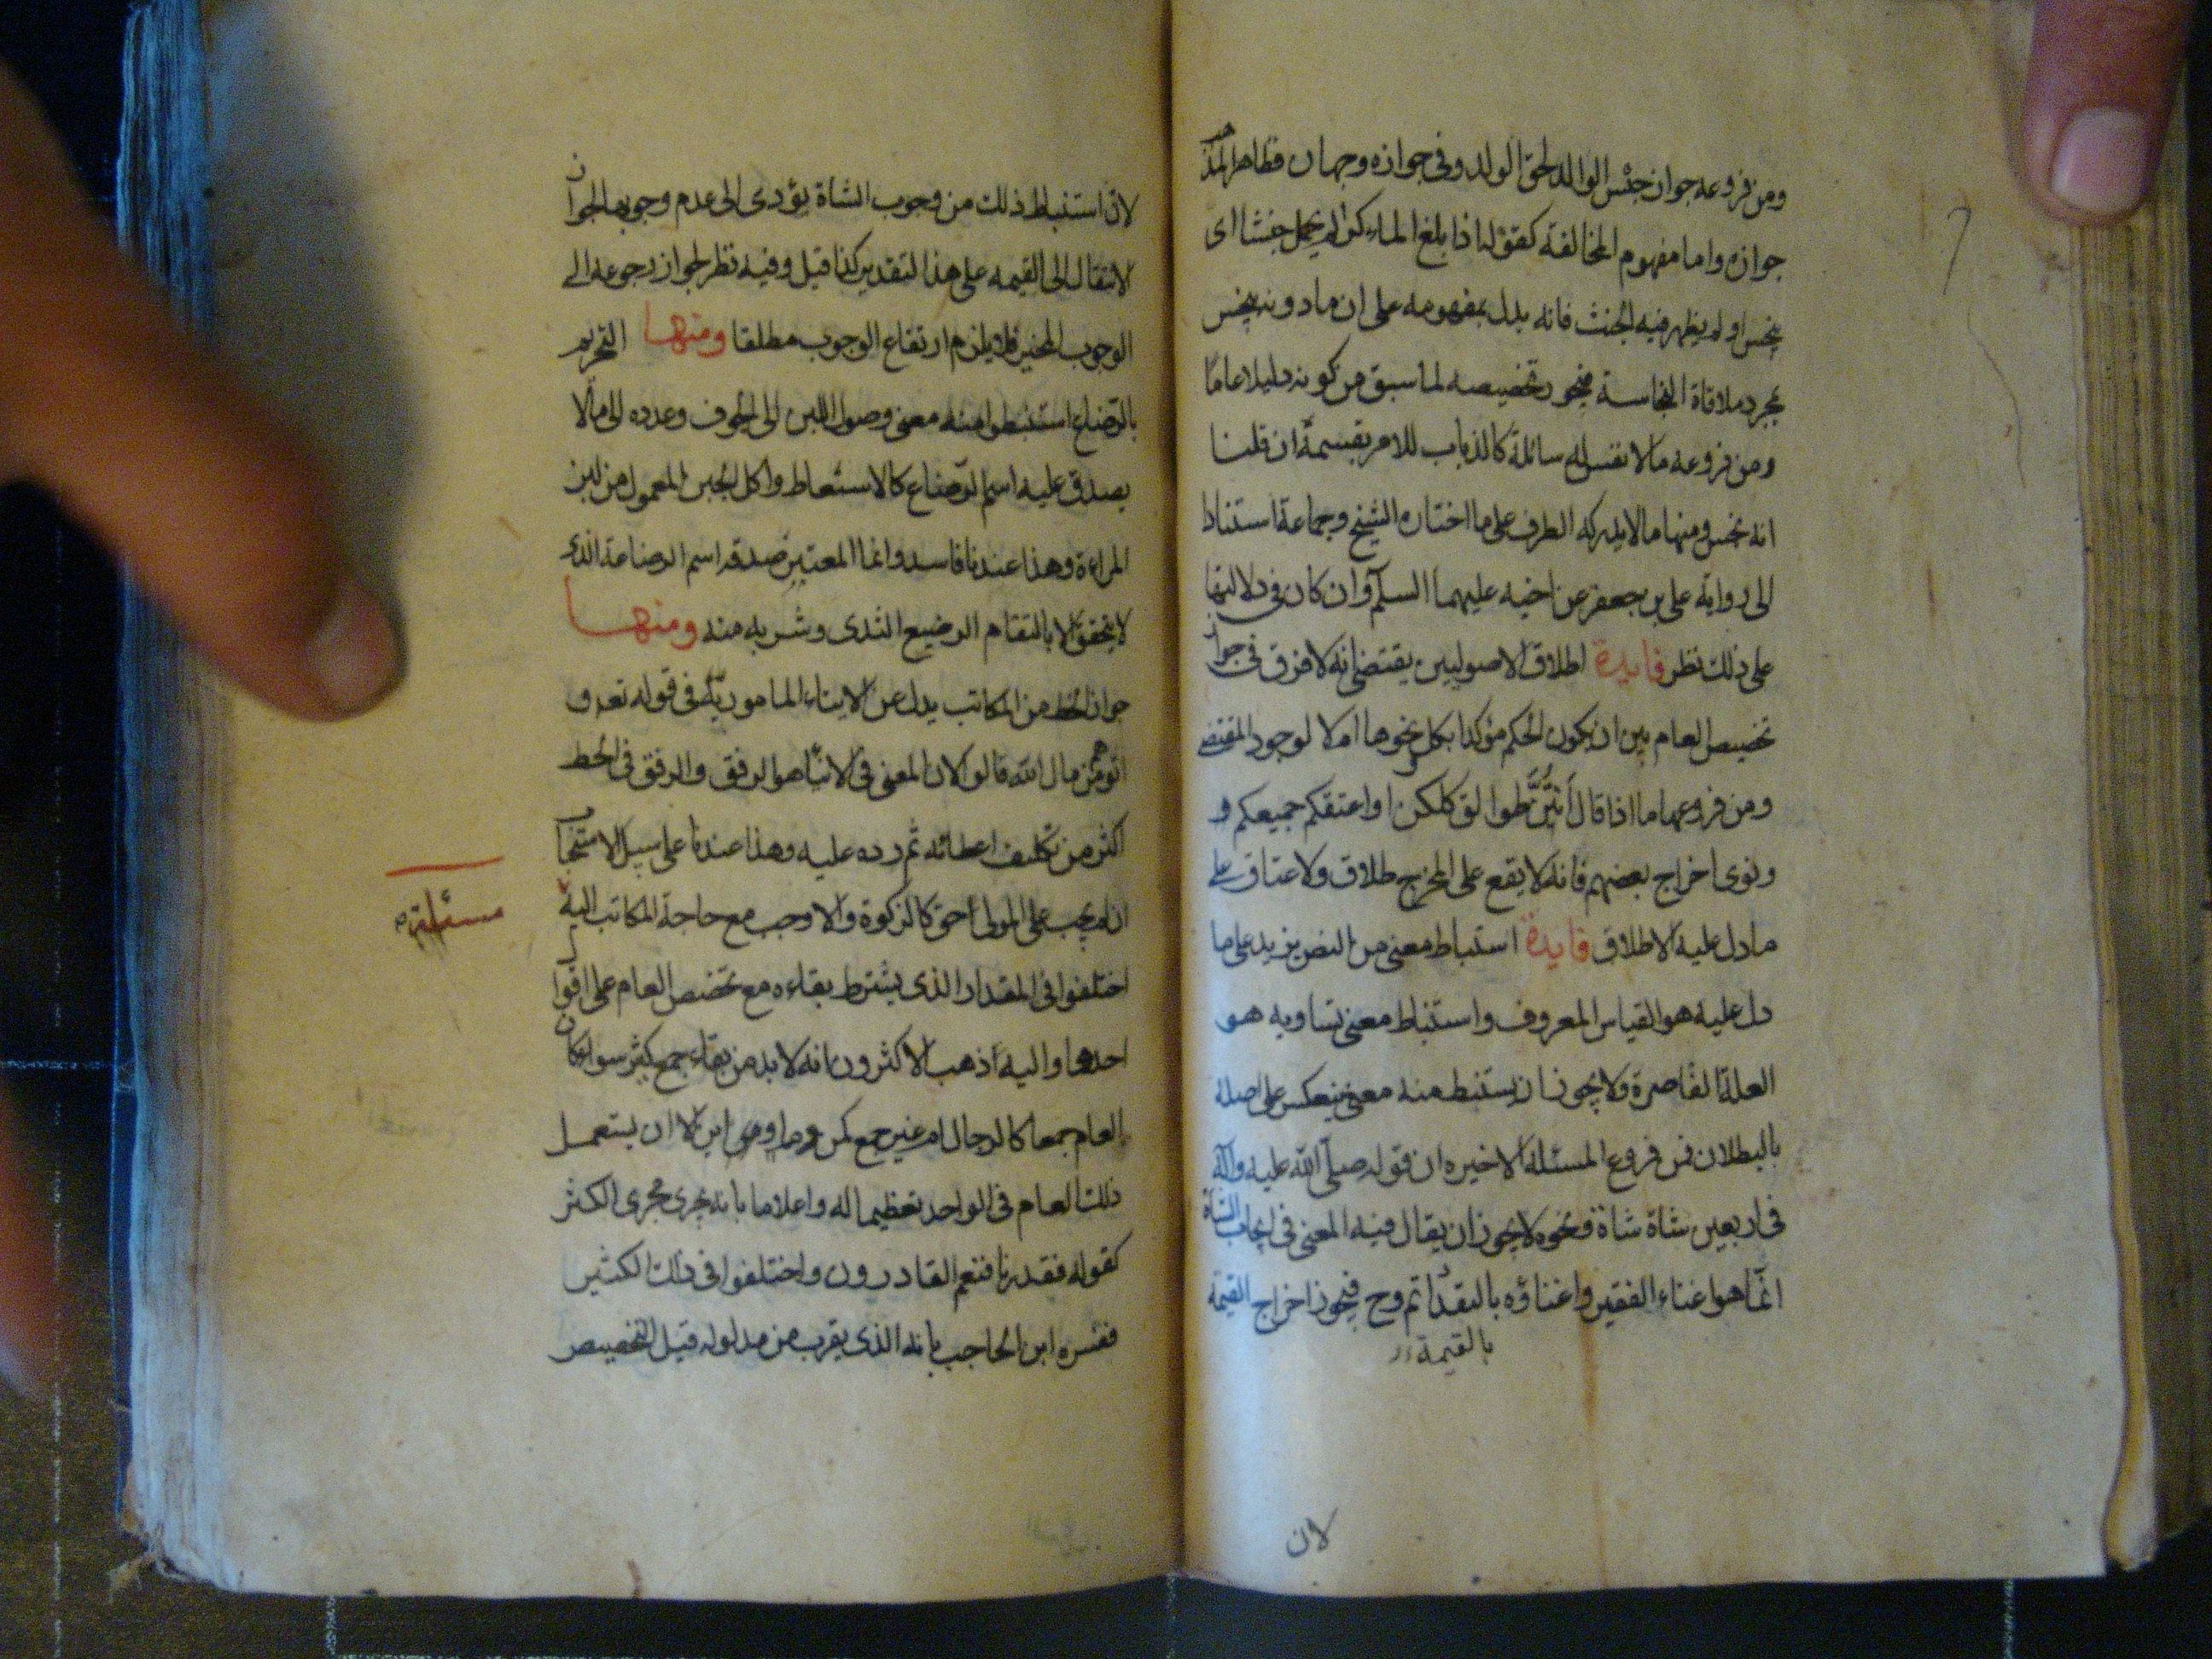 ومن فروعه جواز حبس الوالد لحق الولد وفى جوازه وجهان فظاهر المذهب
جوازه واما مفهوم المخالفة كقوله اذا بلغ الماء كرا لم يحمل خبثا اى
ينجس او لم يظهر فيه الخبث فانه يدل بمفهومه على ان ما دونه ينجس
بمجرد ملاقاة النجاسة فيجوز تخصيصه لما سبق من كونه دليلا عاما
ومن فروعه ما لا نفس له سائلة كالذباب ان قلنا
انه نجس ومنها ما لا يدركه الطرف على ما اختاره الشيخ وجماعة استنادا
الى رواية على بن جعفر عن اخيه عليهما السلم وان كان فى دلالتها
على ذلك نظر فايدة اطلاق الاصوليين يقتضى انه لا فرق فى جواز
تخصيص العام بين ان يكون الحكم مؤكدا بكل ونحوها ام لا لوجود المقتضى
ومن فروعها ما اذا قال انتن طوالق كلكن او اعتقكم جميعكم و
ونوى اخراج بعضهم فانه لا يقع على المخرج طلاق ولا عتاق على
ما دل عليه الاطلاق فايدة استنباط معنى من النص يزيد على ما
دل عليه هو القياس المعروف واستنباط معنى يساويه هو
العلة القاصرة ولا يجوز ان يستنبط منه معنى ينعكس على اصله
بالبطلان فمن فروع المسئلة الاخيره ان قوله صلى الله عليه وآله
فى اربعين شاة شاة ونحوه لا يجوز ان يقال فيه المعنى فى ايجاب الشاة
انما هو اغناء الفقير واغناؤه بالنقد اتم وح فيجوز اخراج القيمة
بالقيمة
لان
لان استنباط ذلك من وجوب الشاة يؤدى الى عدم وجوبها لجواز
الانتقال الى القيمه على هذا التقدير كذا قيل وفيه نظر لجواز رجوعه الى
الوجوب المخير فلا يلزم ارتفاع الوجوب مطلقا ومنها التحريم
بالرضاع استنبطوا منه معنى وصول اللبن الى الجوف وعدوه الى ما لا
يصدق عليه اسم الرضاع كالاستعاط واكل الجبن المعمول من لبن
المراءة وهذا عندنا فاسد وانما المعتبر صدقه اسم الرضاعة الذى
لا يتحقق الا بالتقام الرضيع الثدى وشربه منه ومنها
جواز الحط من المكاتب بدل عن الايتاء المامور به فى قوله تعه و
اتوهم من مال الله قالوا لان المعنى فى الايتاء هو الرفق والرفق فى الحط
اكثر من تكليف اعطائه ثم رده عليه وهذا عندنا على سبيل الاستحباب
ان لم يجب على المولى حق كالزكوة والا وجب مع حاجة المكاتب اليه
مسئلة
اختلفوا فى المقدار الذى يشترط بقاءه مع تخصص العام على اقوال
احدها واليه ذهب الاكثرون انه لا بد من بقاء جمع كثير سواء كان
العام جمعا كالرجال ام غير جمع كمن وما واين الا ان يستعمل
ذلك العام فى الواحد تعظيما له واعلاما بانه يجرى مجرى الكثير
كقوله فقدرنا فنعم القادرون واختلفوا فى ذلك الكثير
ففسره ابن الحاجب بانه الذى يقرب من مدلوله قبل التخصيص